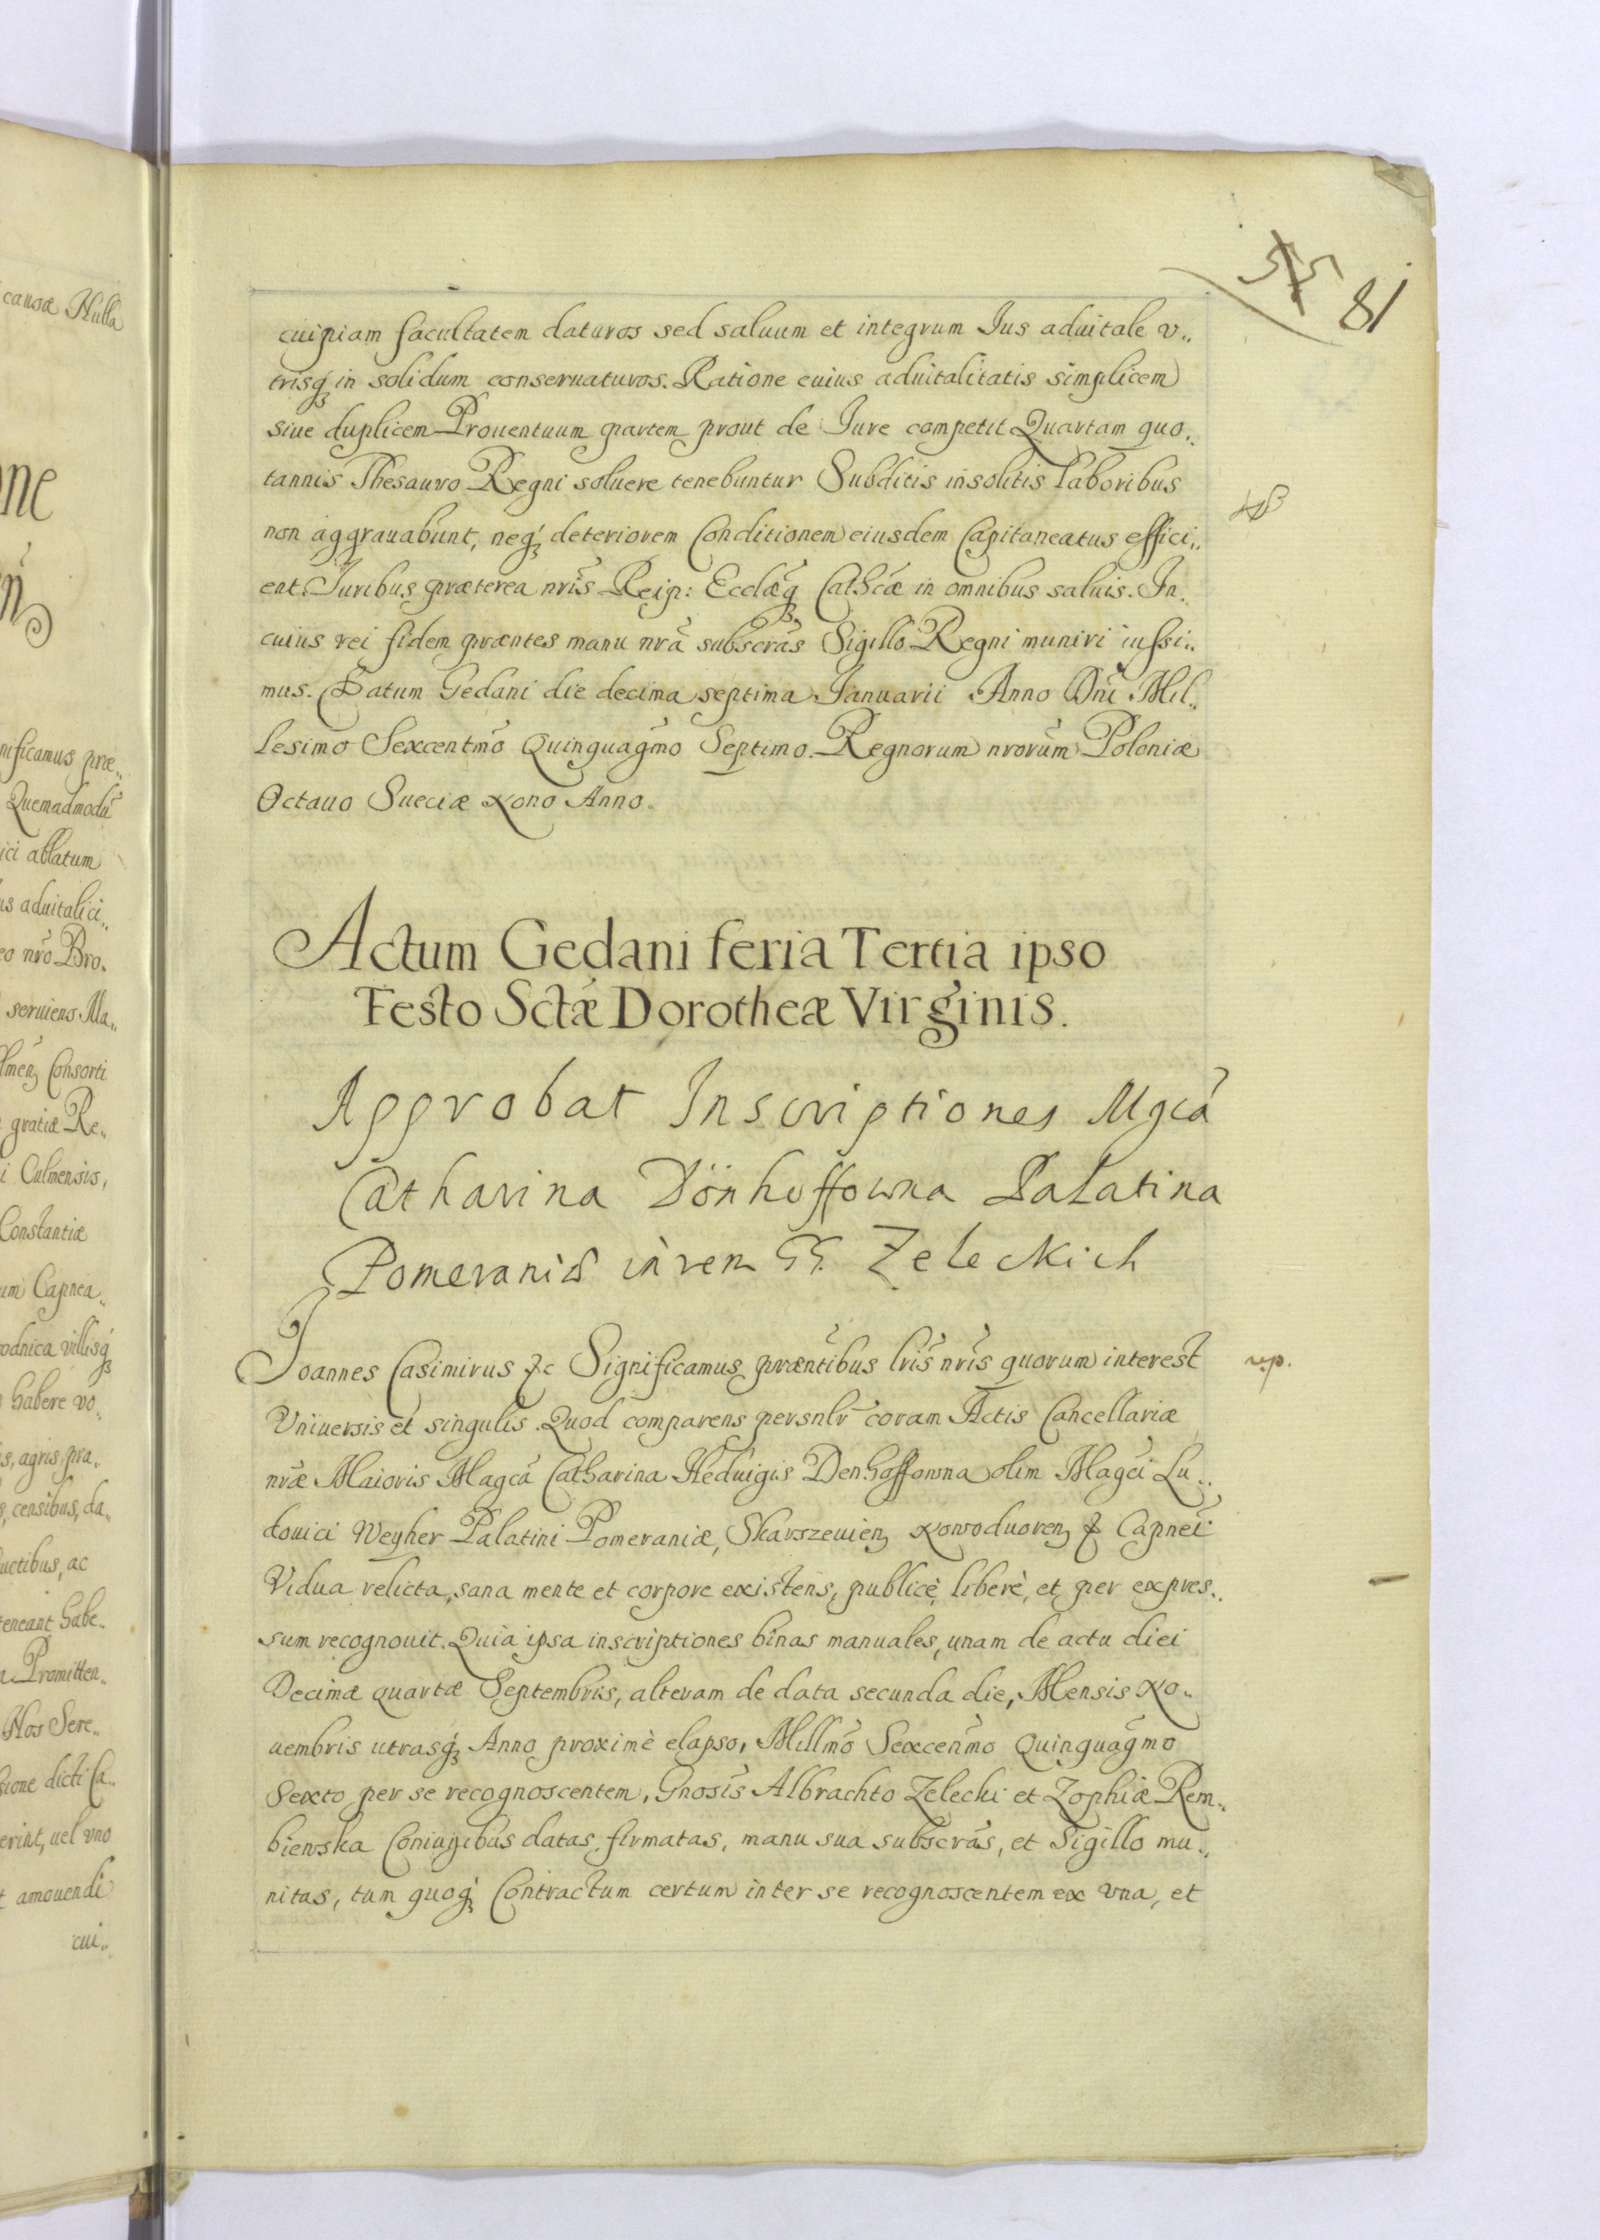 causæ Nulla
one
nificamus præ„
Quemadmodū
ici ablatum
us aduitalici„
eo nrō Bro„
seruiens Ma„
Consorti
gratiæ Re„
i Culmensis,
Constantiæ
um Capnea„
odnica villisq́ꝫ
habere vo„
is, agris, pra„
s, censibus, da„
uctibus, ac
teneant habe„
Promitten„
Nos Sere„
sione dicti Ca„
erint, uel vno
t amouendi
cui„
55 81
cuipiam facultatem daturos sed saluum et integrum Jus aduitale v„
trisq́ꝫ in solidum conseruaturos. Ratione cuius aduitalitatis simplicem
siue duplicem Prouentuum partem prout de Jure competit Quartam quo„
tannis Thesauro Regni soluere tenebuntur Subditis insolitis laboribus
non aggrauabunt, neq́ꝫ deteriorem Conditionem eiusdem Capitaneatus effici„
ent. Juribus præterea nrīs Reip: Ecclǣqꝫ Cathcæ in omnibus saluis. In„
cuius rei fidem præntes manu nrā subscrās Sigillo Regni muniri iussi„
mus. Datum Gedani die decima septima Januarii Anno Dnī Mil„
lesimo Sexcentmō Quinquagmō Septimo. Regnorum nrorūm Poloniæ
Octauo Sueciæ Nono Anno.
Actum Gedani feria Tertia ipso
Festo Sctæ Dorotheæ Virginis.
Approbat Inscriptiones Mgcā
Catharina Dönhoffowna Palatina
Pomeraniæ in rem GG. Zeleckich
Joannes Casimirus &c Significamus præntībus lrīs nrīs quorum interest
Vniuersis et singulis. Quod comparens persnlr̄ coram Actis Cancellariæ
nrǣ Maioris Magcā Catharina Heduigis Denhoffowna olim Magcī Lu„
douici Weyher Palatini Pomeraniæ, Skarszeuienꝫ Nowoduorenꝫ & Capneī
Vidua relicta, sana mente et corpore existens, publicè, liberè, et per expres„
sum recognouit. Quia ipsa inscriptiones binas manuales, unam de actu diei
Decimæ quartæ Septembris, alteram de data secunda die, Mensis No„
uembris utrasq́ꝫ Anno proximè elapso, Millmō Sexcenmō Quinquagmō
Sexto per se recognoscentem, Gnosīs Albrachto Zelecki et Zophiæ Rem„
bienska Coniugibus datas firmatas, manu sua subscrās, et Sigillo mu„
nitas, tum quoq́ꝫ Contractum certum inter se recognoscentem ex vna, et